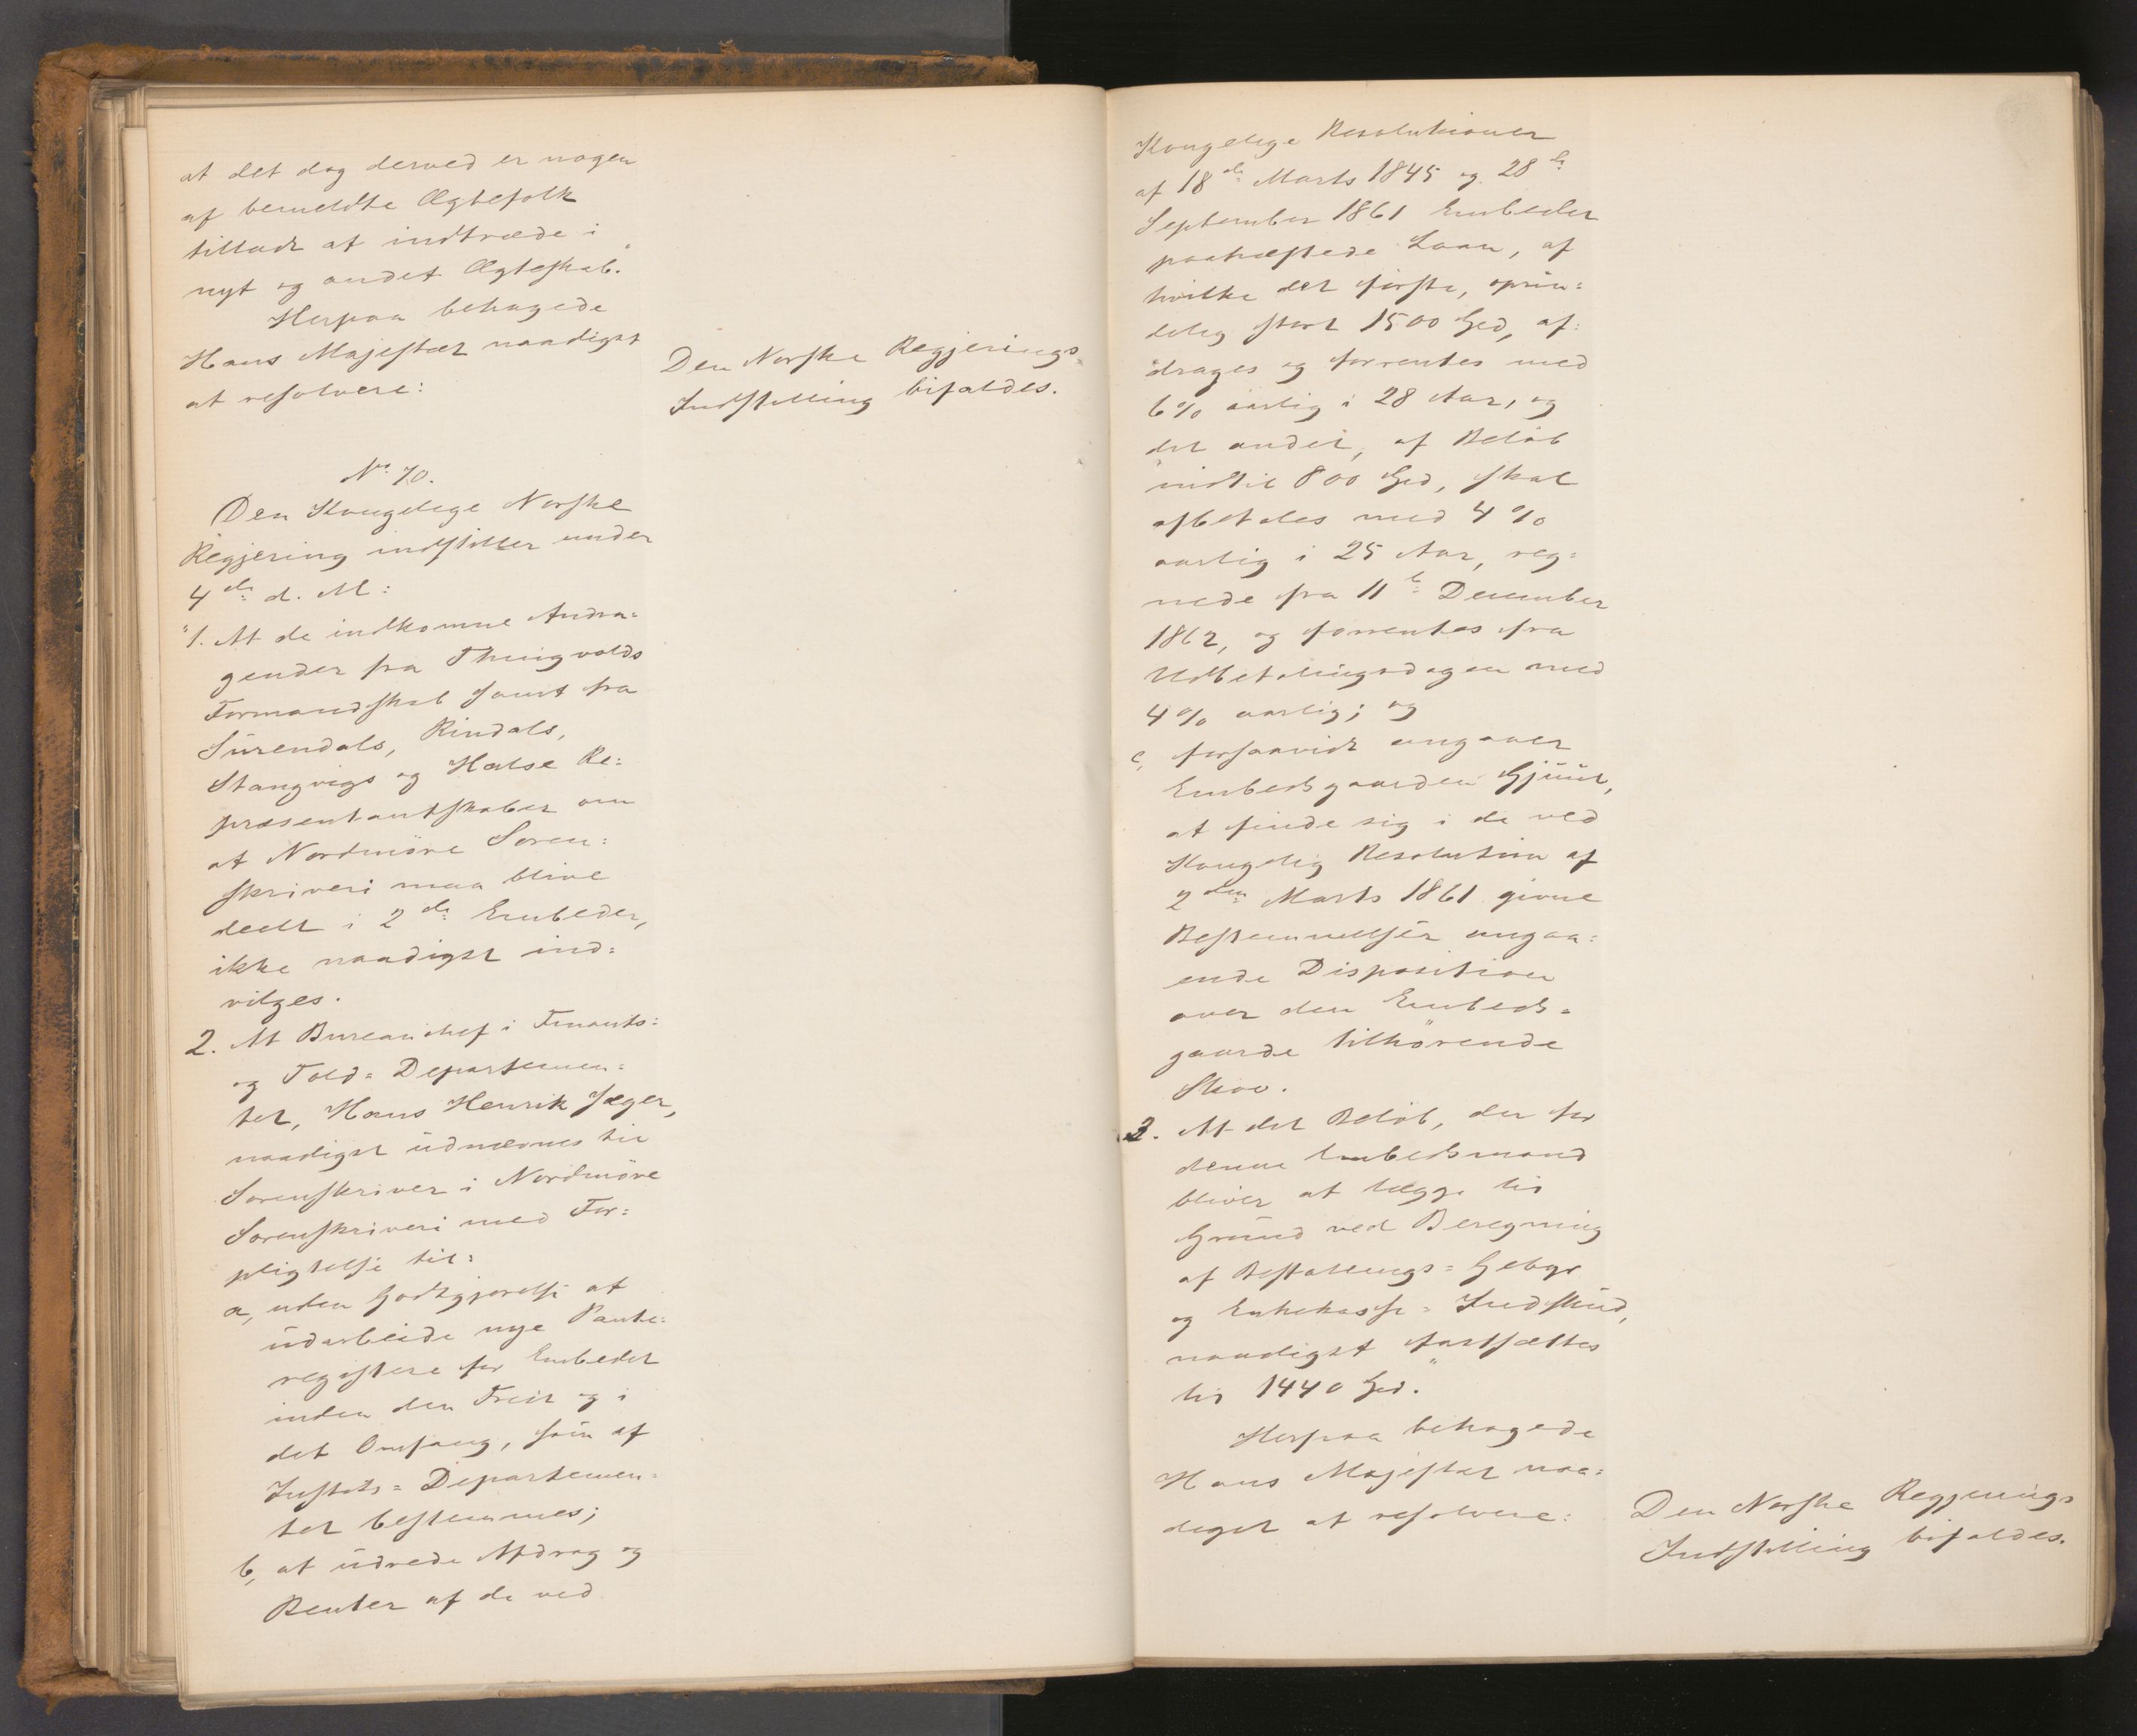 at det dog derved er nogen
af bemeldte Ægtefolk
tilladt at indtræde i
nyt og andet Ægteskab."
Herpaa behagede
Hans Majestæt naadigst
at resolvere:
Den Norske Regjerings
Indstilling bifaldes.
No 70.
Den Kongelige Norske
Regjering indstiller under
4de d. M:
"1. At de indkomne Andra=
gender fra Thingvolds
Formandskab samt fra
Surendals, Rindals,
Stangvigs og Halse Re=
præsentantskaber om
at Nordmöre Soren=
skriveri maa blive
deelt i 2de Embeder,
ikke naadigst ind=
vilges.
2. At Bureauchef i Finants=
og Told=Departemen=
tet, Hans Henrik Jæger,
naadigst udnævnes til
Sorenskriver i Nordmöre
Sorenskriveri med For=
pligtelse til:
a, uden Godtgjörelse at
udarbeide nye Pante=
registere for Embedet
inden den Frist og i
det Omfang, som af
Justits=Departemen=
tet bestemmes;
b, at udrede Afdrag og
Renter af de ved
Kongelige Resolutioner
af 18de Marts 1845 og 28de
September 1861 Embedet
paahæftede Laan, af
hvilke det første, oprin=
delig stort 1500 Spd, af=
drages og forrentes med
6% aarlig i 28 Aar, og
det andet, af Beløb
indtil 800 Spd, skal
afbetales med 4%
aarlig i 25 Aar, reg=
nede fra 11te December
1862, og forrentes fra
Udbetalingsdagen med
4% aarlig; og
c, forsaavidt angaaer
Embedsgaarden Gjüül,
at finde sig i de ved
Kongelig Resolution af
2den Marts 1861 givne
Bestemmelser angaa=
ende Disposition
over den Embeds=
gaarde tilhörende
Skov.
3. At det Beløb, der for
denne Embedsmand
bliver at lægge til
Grund ved Beregning
af Bestallings=Gebyr
og Enkekasse=Indskud,
naadigst fastsættes
til 1440 Spd."
Herpaa behagede
Hans Majestæt naa=
digst at resolvere:
Den Norske Regjerings
Indstilling bifaldes.